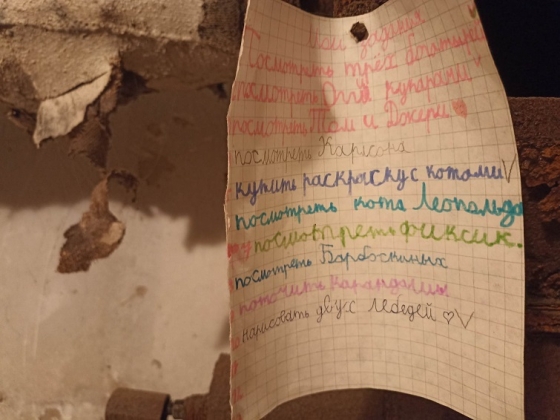 Мои задания
Посмотреть трёх богатырей
посмотреть Оги и
посмотреть Том и Джери
посмотреть Карлсона
купить раскраску с котами V
посмотреть кота Леопольда
посмотреть фиксик.
посмотреть Барбоскиных
поточить карандаши
нарисовать двух лебедей ♡V